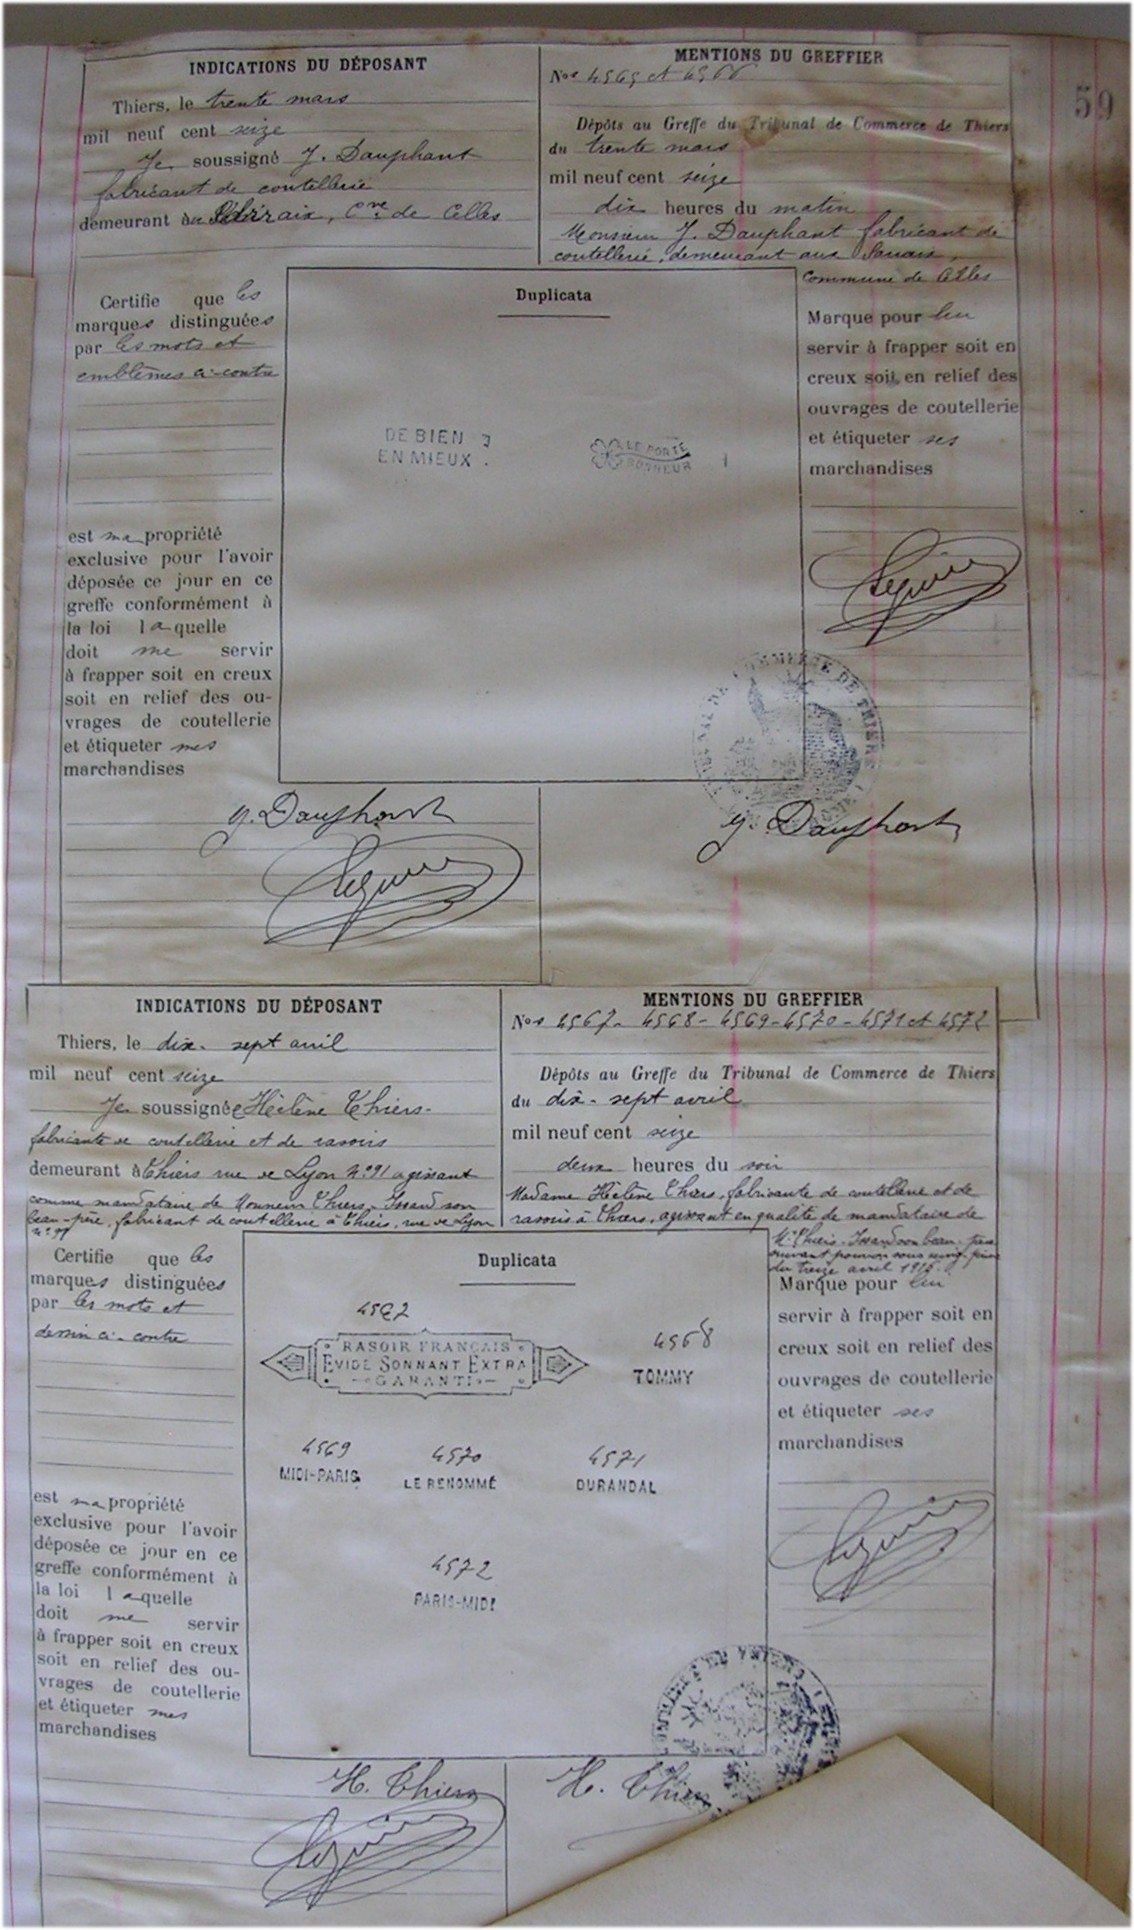 59
INDICATIONS DU DÉPOSANT
Thiers, le trente mars
mil neuf cent seize
Je soussigné J. Dauphant
fabricant de coutellerie
demeurant au , Cne de Celles
Certifie que les
marques distinguées
par les mots et
emblèmes ci-contre
est ma propriété
exclusive pour l'avoir
déposée ce jour en ce
greffe conformément à
la loi laquelle
doit me servir
à frapper soit en creux
soit en relief des ou-
vrages de coutellerie
et étiqueter mes
marchandises
MENTIONS DU GREFFIER
Nos 4565 et 4566
Dépôts au Greffe du Tribunal de Commerce de Thiers
du trente mars
mil neuf cent seize
dix heures du matin
Monsieur J. Dauphant fabricant de
coutellerie, demeurant aux
Commune de Celles
Marque pour lui
servir à frapper soit en
creux soit en relief des
ouvrages de coutellerie
et étiqueter ses
marchandises
Duplicata
DE BIEN
EN MIEUX
LE PORTE
BONHEUR
TRIBUNAL DE COMMERCE DE THIERS
J. Dauphant
J. Dauphant
INDICATIONS DU DÉPOSANT
Thiers, le dix-sept avril
mil neuf cent seize
Je soussignée Hélène Thiers-
fabricante de coutellerie et de rasoirs
demeurant à Thiers rue de Lyon No 91 agissant
comme mandataire de Monsieur Thiers-Issard son
beau-père, fabricant de coutellerie à Thiers, rue de Lyon
No 91
Certifie que les
marques distinguées
par les mots et
dessin ci-contre
est ma propriété
exclusive pour l'avoir
déposée ce jour en ce
greffe conformément à
la loi laquelle
doit me servir
à frapper soit en creux
soit en relief des ou-
vrages de coutellerie
et étiqueter mes
marchandises
MENTIONS DU GREFFIER
Nos 4567 - 4568 - 4569 - 4570 - 4571 et 4572
Dépôts au Greffe du Tribunal de Commerce de Thiers
du dix-sept avril
mil neuf cent seize
deux heures du soir
Madame Hélène Thiers, fabricante de coutellerie et de
rasoirs à Thiers, agissant en qualité de mandataire de
Mr Thiers-Issard son beau-père
suivant pouvoir sous seing-privé
du treize avril 1916.
Marque pour lui
servir à frapper soit en
creux soit en relief des
ouvrages de coutellerie
et étiqueter ses
marchandises
Duplicata
4567
RASOIR FRANÇAIS
EVIDE SONNANT EXTRA
GARANTI
4568
TOMMY
4569
MIDI-PARIS
4570
LE RENOMMÉ
4571
DURANDAL
4572
PARIS-MIDI
H. Thiers
H. Thiers